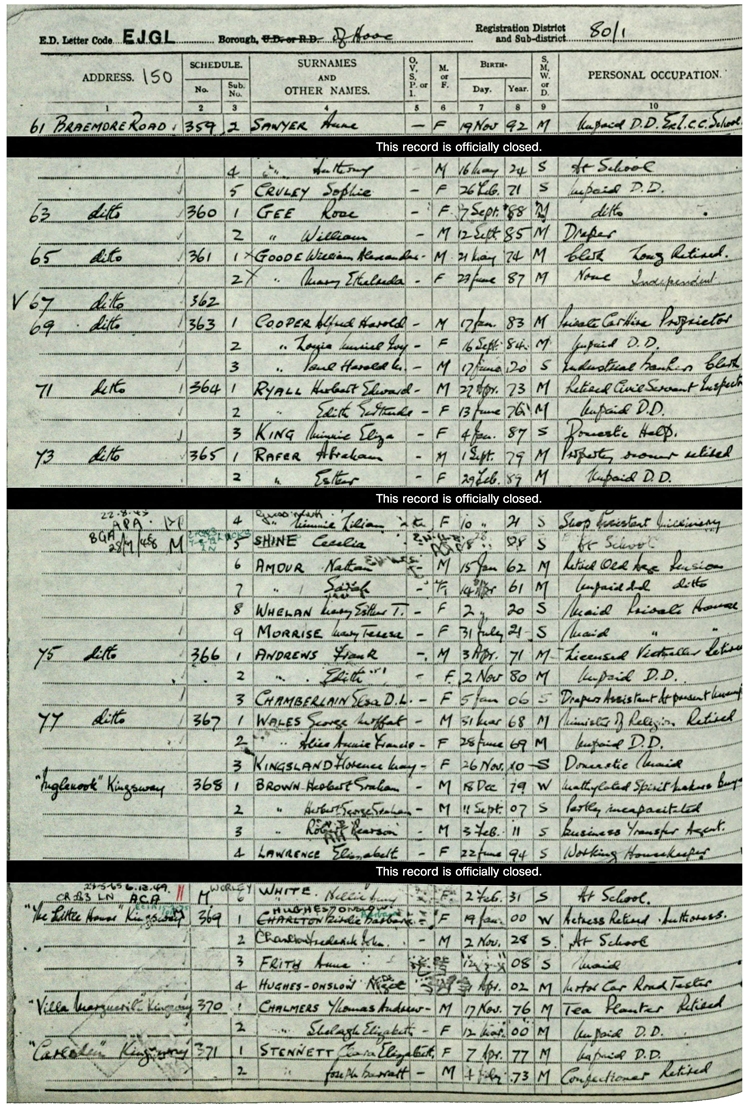 E.D. Letter Code EJGL Borough, U.D. or R.D. of Hove Registration District and Sub-district 80/1
ADDRESS. 150 SCHEDULE. SURNAMES AND OTHER NAMES. O, V, S, P. or I. M. or F. BIRTH— S, M, W. or D. PERSONAL OCCUPATION.
No. Sub. No. Day. Year.
1 2 3 4 5 6 7 8 9 10
61 BRAEMORE ROAD 359 2 SAWYER Anne - F 19 Nov 92 M Unpaid D.D. Ex L.C.C. School
This record is officially closed.
4 " Anthony - M 16 May 24 S At School
5 CRULEY Sophie - F 26 Feb. 71 S Unpaid D.D.
63 ditto 360 1 GEE Rose - F 7 Sept. 88 M ditto
2 " William - M 12 Sept 85 M Draper
65 ditto 361 1 GOODE William Alexander - M 21 May 74 M Cloth Retired.
2 " Mary Ethelreda - F 27 June 87 M None Independent
V 67 ditto 362
69 ditto 363 1 COOPER Alfred Harold - M 17 Jan. 83 M Private Car Hire Proprietor
2 " - F 16 Sept. 84 M Unpaid D.D.
3 " Paul Harold - M 17 June 20 S Industrial Bankers Clerk
71 ditto 364 1 RYALL Herbert Edward - M 27 Apr. 73 M Retired Civil Servant
2 " Edith Gertrude - F 13 June 76 M Unpaid D.D.
3 KING Minnie Eliza - F 4 Jan. 87 S Domestic Help.
73 ditto 365 1 RAFER Abraham - M 1 Sept. 79 M Property owner retired
2 " Esther - F 29 Feb. 89 M Unpaid D.D.
This record is officially closed.
22-8-45 4 " Minnie Lilian F 10 " 21 S Shop Assistant Millinery
APA
BGA 28/7/48 M 5 SHINE Cecelia F 28 S At School
6 AMOUR Nathan - M 15 Jan 62 M Retired Old Age Pension
7 " Sarah 14 Apr 61 M Unpaid d.d ditto
8 WHELAN Mary Esther T. - F 2 " 20 S Maid Private House
9 MORRISE Mary Terese - F 31 July 21 S Maid " "
75 ditto 366 1 ANDREWS Frank - M 3 Apr. 71 M Licensed Victualler Retired
2 " Edith - F 2 Nov 80 M Unpaid D.D.
3 CHAMBERLAIN Elsa D.L. - F 5 Jan 06 S Drapers Assistant At present
77 ditto 367 1 WALES George Moffat - M 31 Mar 68 M Minister of Religion Retired
2 " Alice Annie Francis - F 28 June 69 M Unpaid D.D.
3 KINGSLAND Florence May - F 26 Nov. 10 S Domestic Maid
"Inglenook" Kingsway 368 1 BROWN Herbert Graham - M 18 Dec 79 W Methylated Spirit Makers
2 " Herbert George Graham - M 11 Sept. 07 S Partly incapacitated
3 " Robert Pearson - M 3 Feb. 11 S Business Transfer Agent.
4 LAWRENCE Elizabeth - F 22 June 94 S Working Housekeeper
This record is officially closed.
6.12.49 ACA M WORLEY 6 WHITE Nellie F 2 Feb. 31 S At School.
HUGHES-ONSLOW
"The Little House" Kingsway 369 1 CHARLTON Barbara F 19 Jan. 00 W Actress Retired Authoress.
2 Charlton Frederick John - M 2 Nov. 28 S At School
3 FRITH Anne F 08 S Maid
4 HUGHES-ONSLOW Apr. 02 M Motor Car Road Tester
Kingsway 370 1 CHALMERS Thomas Andrew - M 17 Nov. 76 M Tea Planter Retired
2 " Shelagh Elizabeth - F 12 Mar. 00 M Unpaid D.D.
Kingsway 371 1 STENNETT Clara Elizabeth F 7 Apr. 77 M Unpaid D.D.
2 " Joseph Barratt - M 4 July 73 M Confectioner Retired